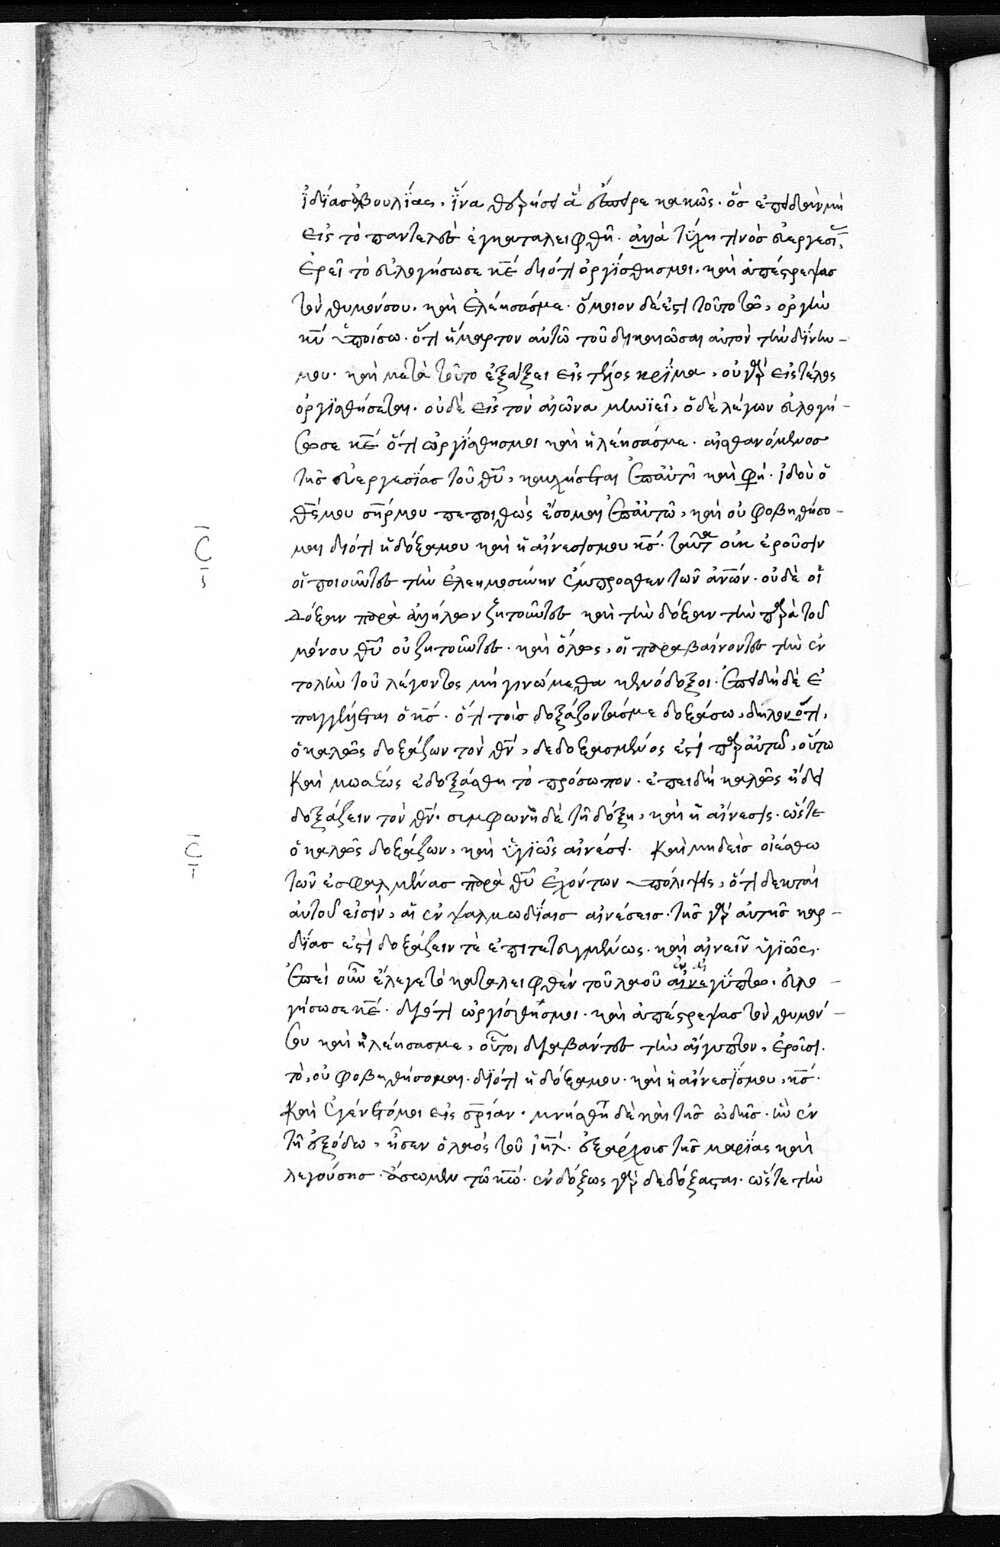 ἰδίας ἀβουλίας, ἵνα θερίση ἃ ἔσπειρε κακῶς· ὃς ἐπειδὰν μὴ
εἰς τὸ παντελὲς ἐγκαταλειφθῆ· ἀλλὰ τύχη τινὸς εὐεργεσί,
ἐρεῖ τὸ εὐλογήσω σε κε διότι ὀργίσθης μοι, καὶ ἀπέστρεψας
τὸν θυμόν σου, καὶ ἐλέησάς με· ὅμοιον δέ ἐστι τοῦτο τῶ, ὀργὴν
κυ ὑποίσω· ὅτι ἥμαρτον αὐτῶ τοῦ δικαιῶσαι αὐτὸν τὴν δίκην
μου· καὶ μετὰ τοῦτο ἐξάξει εἰς τέλος κρίμα, οὐ γὰρ εἰς τέλος
ὀργισθήσεται· οὐδὲ εἰς τὸν αἰῶνα μηνιεῖ, ὁ δὲ λέγων εὐλογή-
σω σε κε ὅτι ὠργίσθης μοι καὶ ἠλέησάς με· αἰσθανόμενος
τῆς εὐεργεσίας τοῦ θυ, καυχήσεται ἐπ' αὐτῆ καὶ φη· ἰδοὺ ὁ
θς μου σηρ μου πεποιθὼς ἔσομαι ἐπ' αὐτῶ, καὶ οὐ φοβηθήσο-
μαι διότι ἡ δόξα μου καὶ ἡ αἴνεσίς μου κς· ταῦτα οὐκ ἐροῦσιν
οἱ ποιοῦντες τὴν ἐλεημοσύνην ἔμπροσθεν τῶν ανων· οὐδὲ οἱ
δόξαν παρὰ ἀλλήλων ζητοῦντες καὶ τὴν δόξαν τὴν παρὰ τοῦ
μόνου θυ οὐ ζητοῦντες· καὶ ὅλως, οἱ παραβαίνοντες τὴν ἐν
τολὴν τοῦ λέγοντος μὴ γινώμεθα κενόδοξοι· ἐπειδὴ δὲ ἐ
παγγέλλεται ὁ κς· ὅτι τοὺς δοξάζοντάς με δοξάσω, δῆλον ὅτι,
ὁ καλῶς δοξάζων τὸν θν, δεδοξασμένος ἐστὶ παρ' αὐτοῦ, οὕτω
καὶ μωσέως ἐδοξάσθη τὸ πρόσωπον· ἐπειδὴ καλῶς ἤδει
δοξάζειν τὸν θν· συμφωνῆ δὲ τῆ δόξη, καὶ ἡ αἴνεσις· ὥστε
ὁ καλῶς δοξάζων, καὶ ὑγιῶς αἰνέσει· καὶ μηδεὶς οἰέσθω
τῶν ἐσφαλμένας παρὰ θυ ἐχόντων ὑπολήψεις, ὅτι δεκταὶ
αὐτοῦ εἰσὶν, αἱ ἐν ψαλμωδίαις αἰνέσεις· τῆς γὰρ αὐτῆς καρ-
δίας ἐστὶ δοξάζειν τε ἐπιτεταγμένως· καὶ αἰνεῖν ὑγιῶς·
ἐπεὶ οὖν ἔλεγε τὸ καταλειφθὲν τοῦ λαοῦ ἐν αἰγύπτω· εὐλο-
γήσω σε κε· διότι ὠργίσθης μοι· καὶ ἀπέστρεψας τὸν θυμόν
σου καὶ ἠλέησάς με, οὗτοι διαβάντες τὴν αἴγυπτον, ἐροῦσι
τὸ, οὐ φοβηθήσομαι· διότι ἡ δόξα μου· καὶ ἡ αἴνεσίς μου, κς·
καὶ ἐγένετό μοι εἰς σριαν· μνήσθη δὲ καὶ τῆς ὠδῆς· ἣν ἐν
τῆ ἐξόδω, ἦσεν ὁ λαὸς τοῦ ιηλ· ἐξαρχούσης τῆς μαρίας καὶ
λεγούσης· ἄσωμεν τῶ κω· ἐνδόξως γὰρ δεδόξασται· ὥστε τὴν